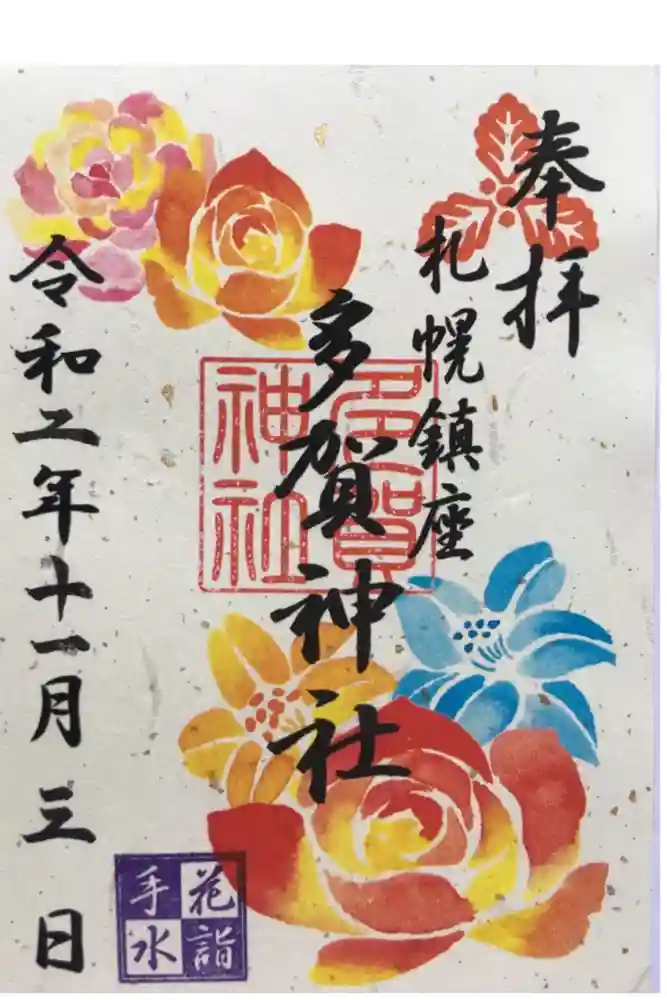 奉拝
札幌鎮座
多賀神社
多賀
神社
令和二年十一月三日
花詣
手水